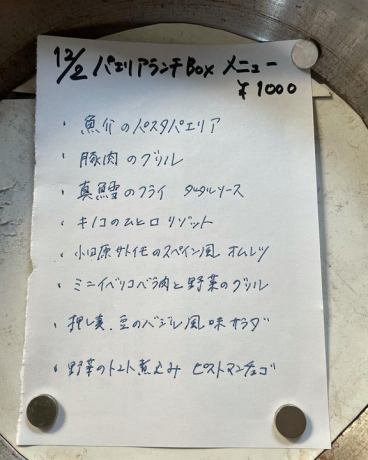 12/2 パエリアランチBox メニュー
¥1000
・魚介のパスタパエリア
・豚肉のグリル
・真鱈のフライ タルタルソース
・キノコのムヒロ リゾット
・小田原サトイモのスペイン風 オムレツ
・ミニイベリコベラ肉と野菜のグリル
・押し麦、豆のバジル風味サラダ
・野菜のトマト煮込み ピストマンチェゴ